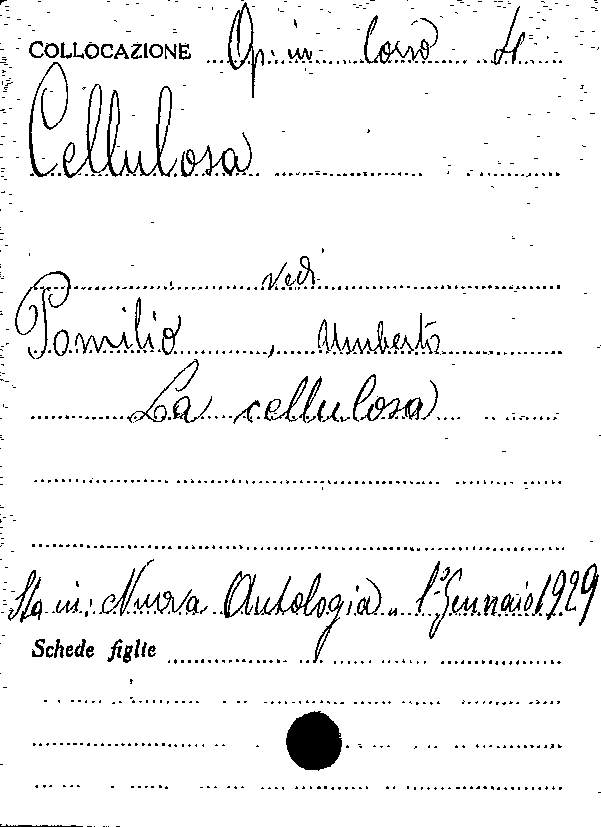 COLLOCAZIONE Op. in Corso 4
Cellulosa
vedi
Pomilio, Umberto
La cellulosa
Sta in: Nuova Antologia. 1° Gennaio 1929
Schede figlie